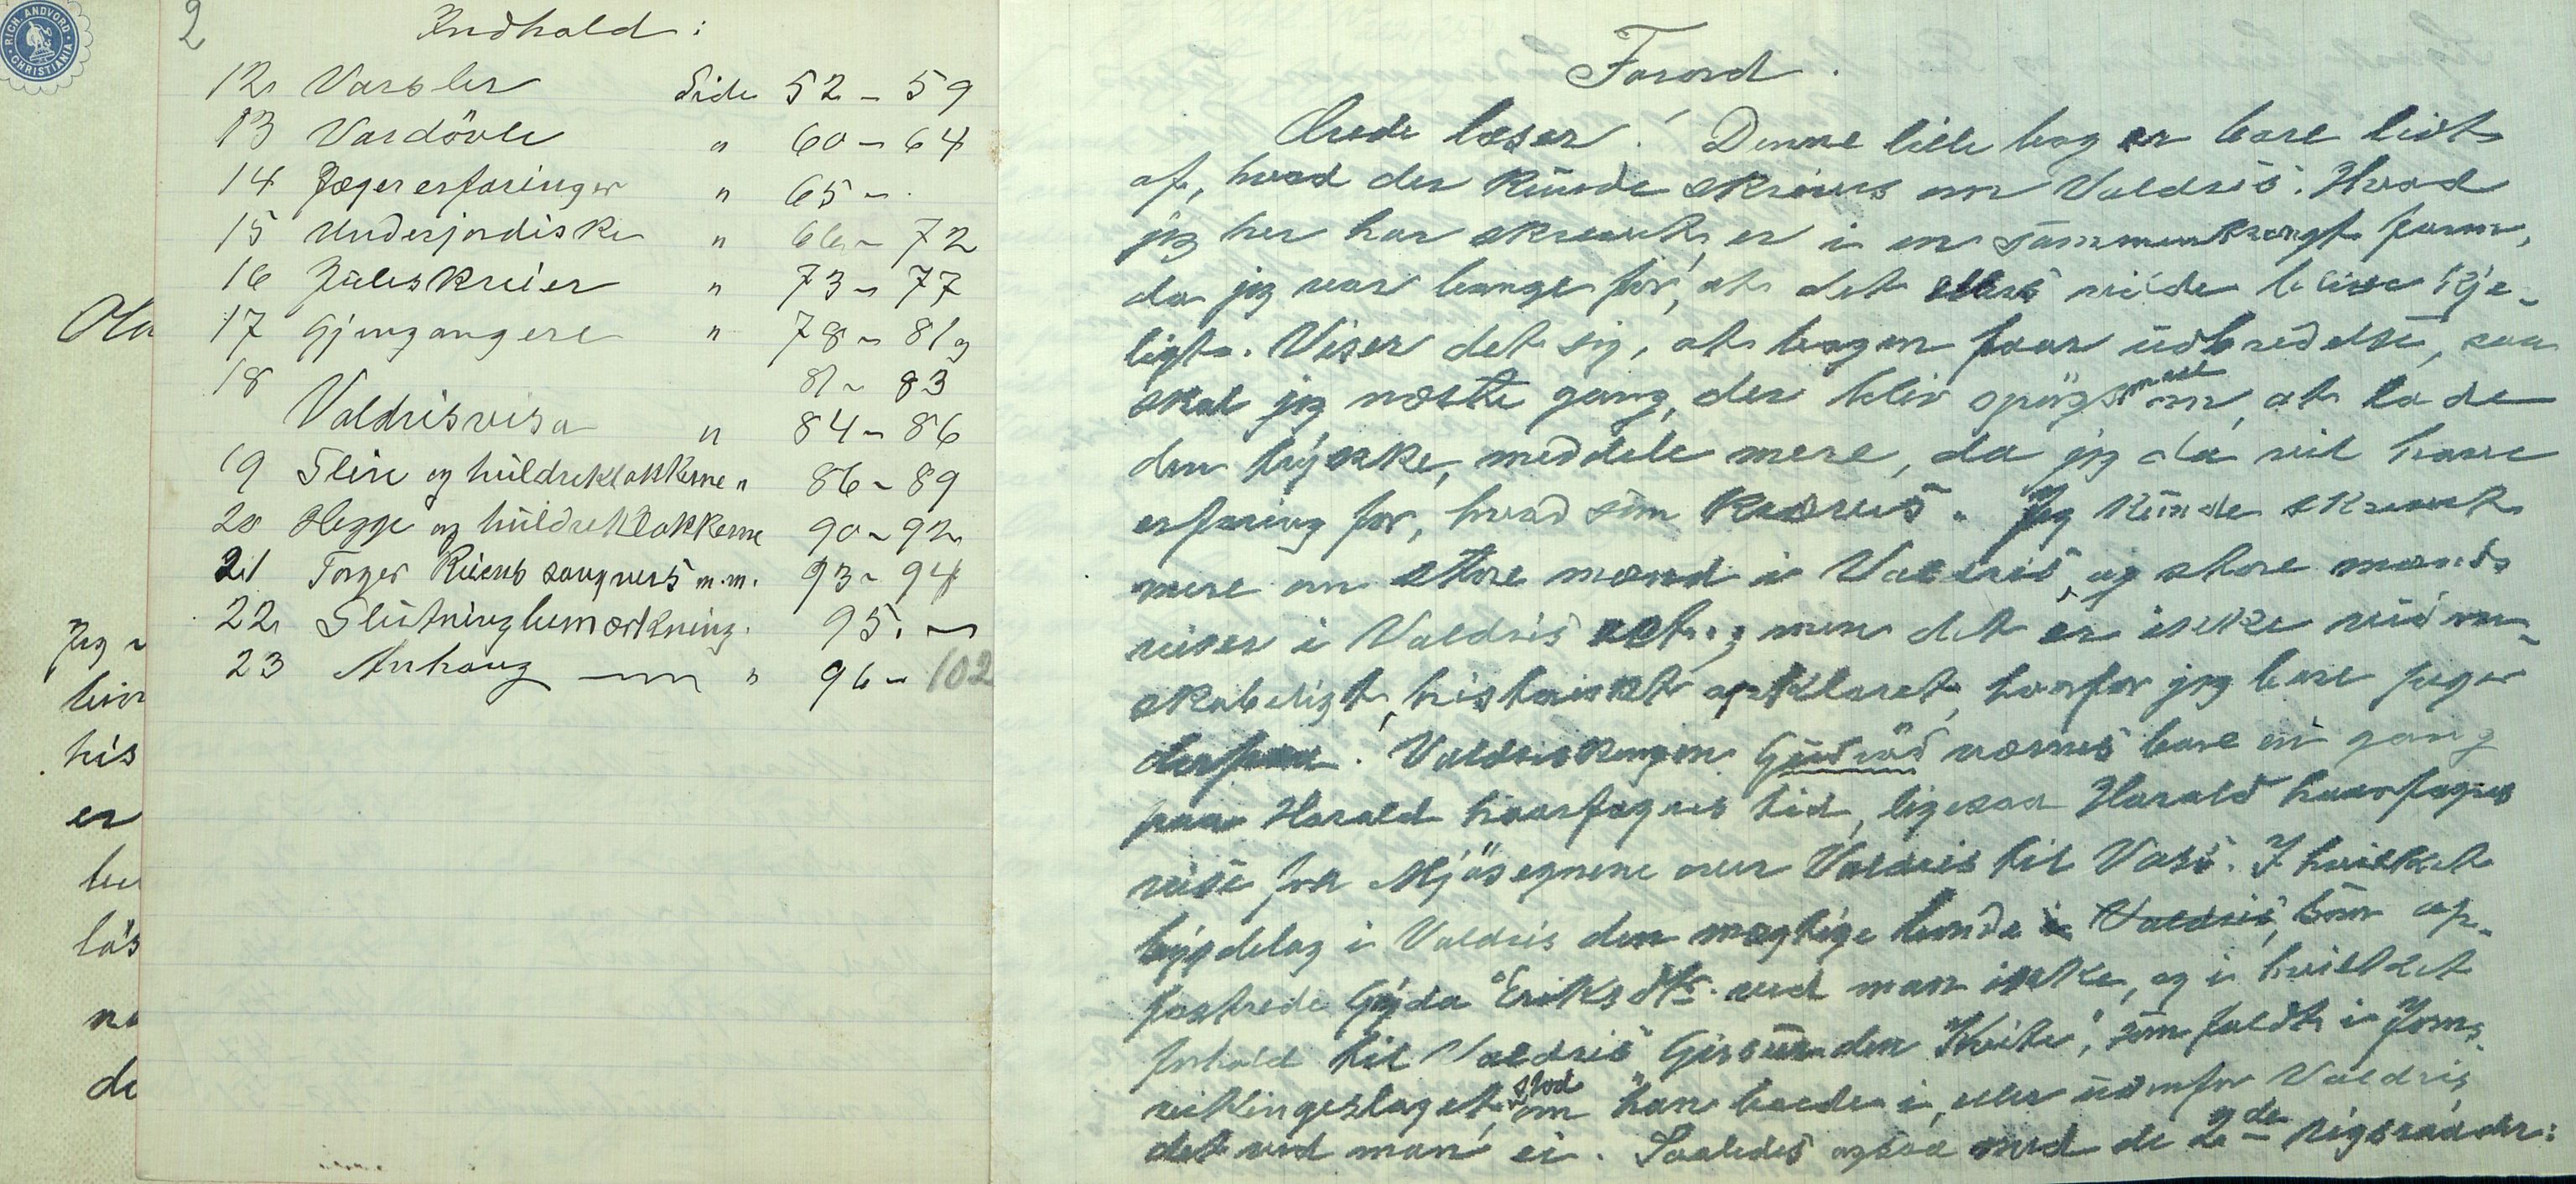 RICH. ANDVORD
CHRISTIANIA
2
Indhold:
12. Varsler Side 52 - 59
13 Vardövle " 60 - 64
14 Jægererfaringer " 65 -
15 Underjordiske " 66 - 72
16 Juleskreier " 73 - 77
17 Gjengangere " 78 - 81 og
18 81 - 83
Valdrisvisa " 84 - 86
19 Slire og huldreklokkerne " 86 - 89
20 Hegge og huldreklokkerne 90 - 92
21 Torger Ruens sangvers m.m. 93 - 94
22. Slutningbemærkning. 95. -
23 Anhang " 96 - 102
Ola
Jeg
his
er
de
Forord.
Ærede læser! Denne lille bog er bare lidt
af, hvad der kunde skrives om Valdris. Hvad
jeg her har skrevet, er i en sammentrængt form,
da jeg var bange for, at det ellers vilde blive kje-
ligt. Viser det sig, at bogen faar udbredelse, saa
skal jeg næste gang, der bliver spörgsmaal om, at lade
den trykke, meddele mere, da jeg da vil have
erfaring for, hvad som kræves. Jeg kunde skrevet
mere om store mænd i Valdris, og store mænds
reiser i Valdris ect.; men det er ikke viden-
skabeligt, historisket opklaret, hvorfor jeg bare peger
derpaa. Valdriskongen Gudröd nævnes bare en gang
paa Harald haarfagres tid, ligesaa Harald haarfagres
reise fra Mjösegnene over Valdris til Vors. I hvilket
bygdelag i Valdris den mægtige bonde i Valdris, som op-
fostrede Gyda Eriksdtr. ved man ikke, og i hvilket
forhold til Valdris Gissur den "Hvite", som faldt i Joms-
vikingeslaget, stod om han boede i, eller udenfor Valdris,
det ved man ei. Saaledes ogsaa med de 2de rigsraader: